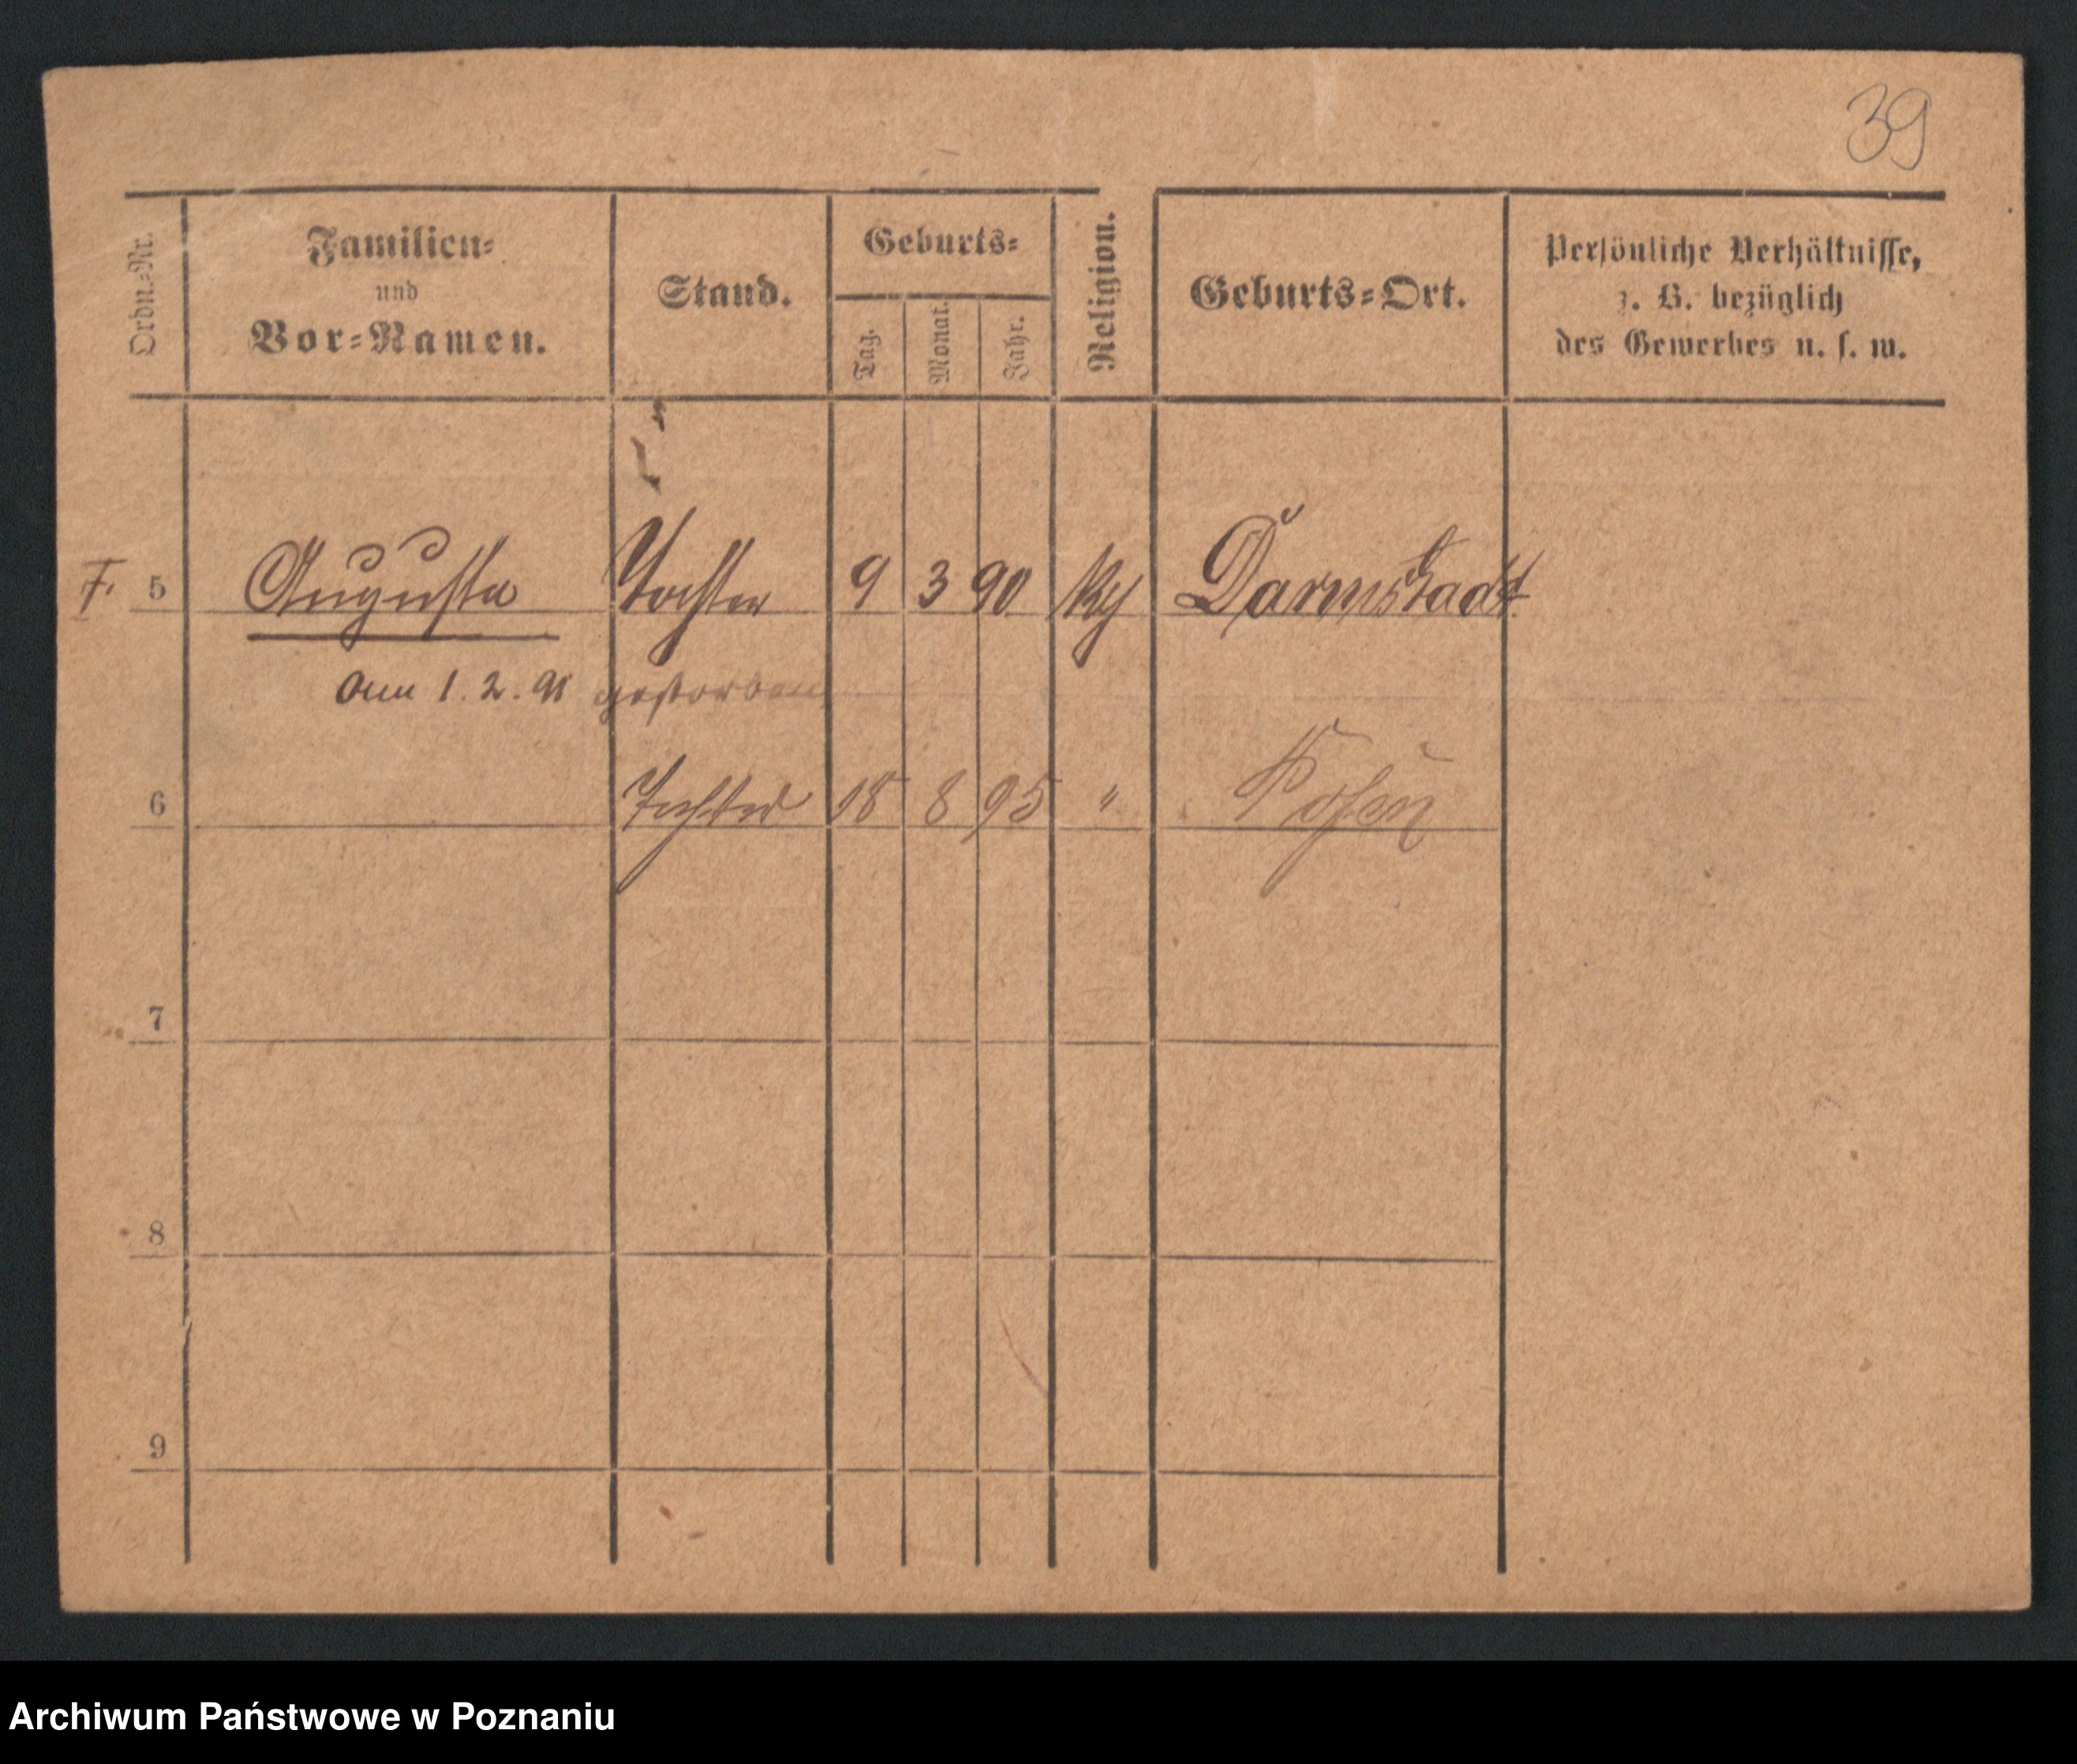 39
Ordn.-Nr.
Familien-
und
Vor-Namen.
Stand.
Geburts-
Tag.
Monat.
Jahr.
Religion.
Geburts-Ort.
Persönliche Verhältnisse,
z. B. bezüglich
des Gewerbes u. s. w.
5 Augusta Tochter 9 3 90 Darmstadt
Am 1. 2. 91 gestorben
6 Tochter 18 8 95 " Posen
7
8
9
Archiwum Państwowe w Poznaniu